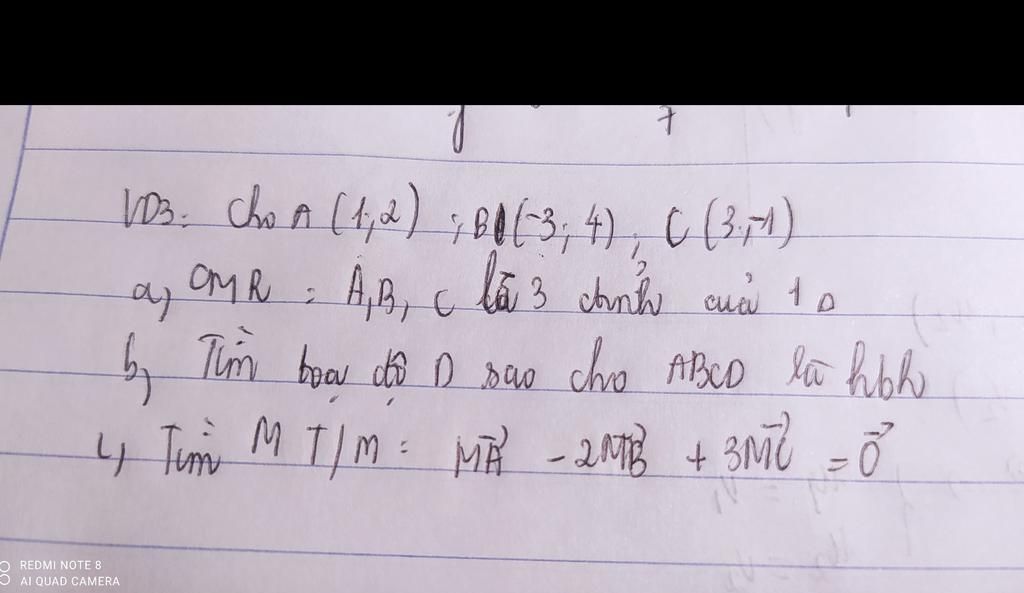 VD3: Cho A (1;2) ; B(-3; 4) ; C (3;-1)
a, CMR : A,B, C là 3 đỉnh của 1 Δ
b, Tìm toạ độ D sao cho ABCD là hbh
c, Tìm M T/m : MA⃗ - 2MB⃗ + 3MC⃗ = 0⃗
REDMI NOTE 8
AI QUAD CAMERA